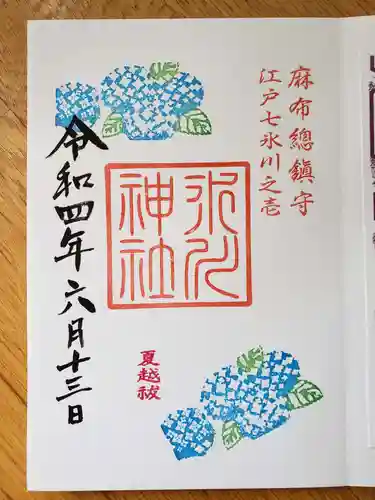 麻布總鎮守
江戸七氷川之壱
氷川
神社
夏越祓
令和四年六月十三日